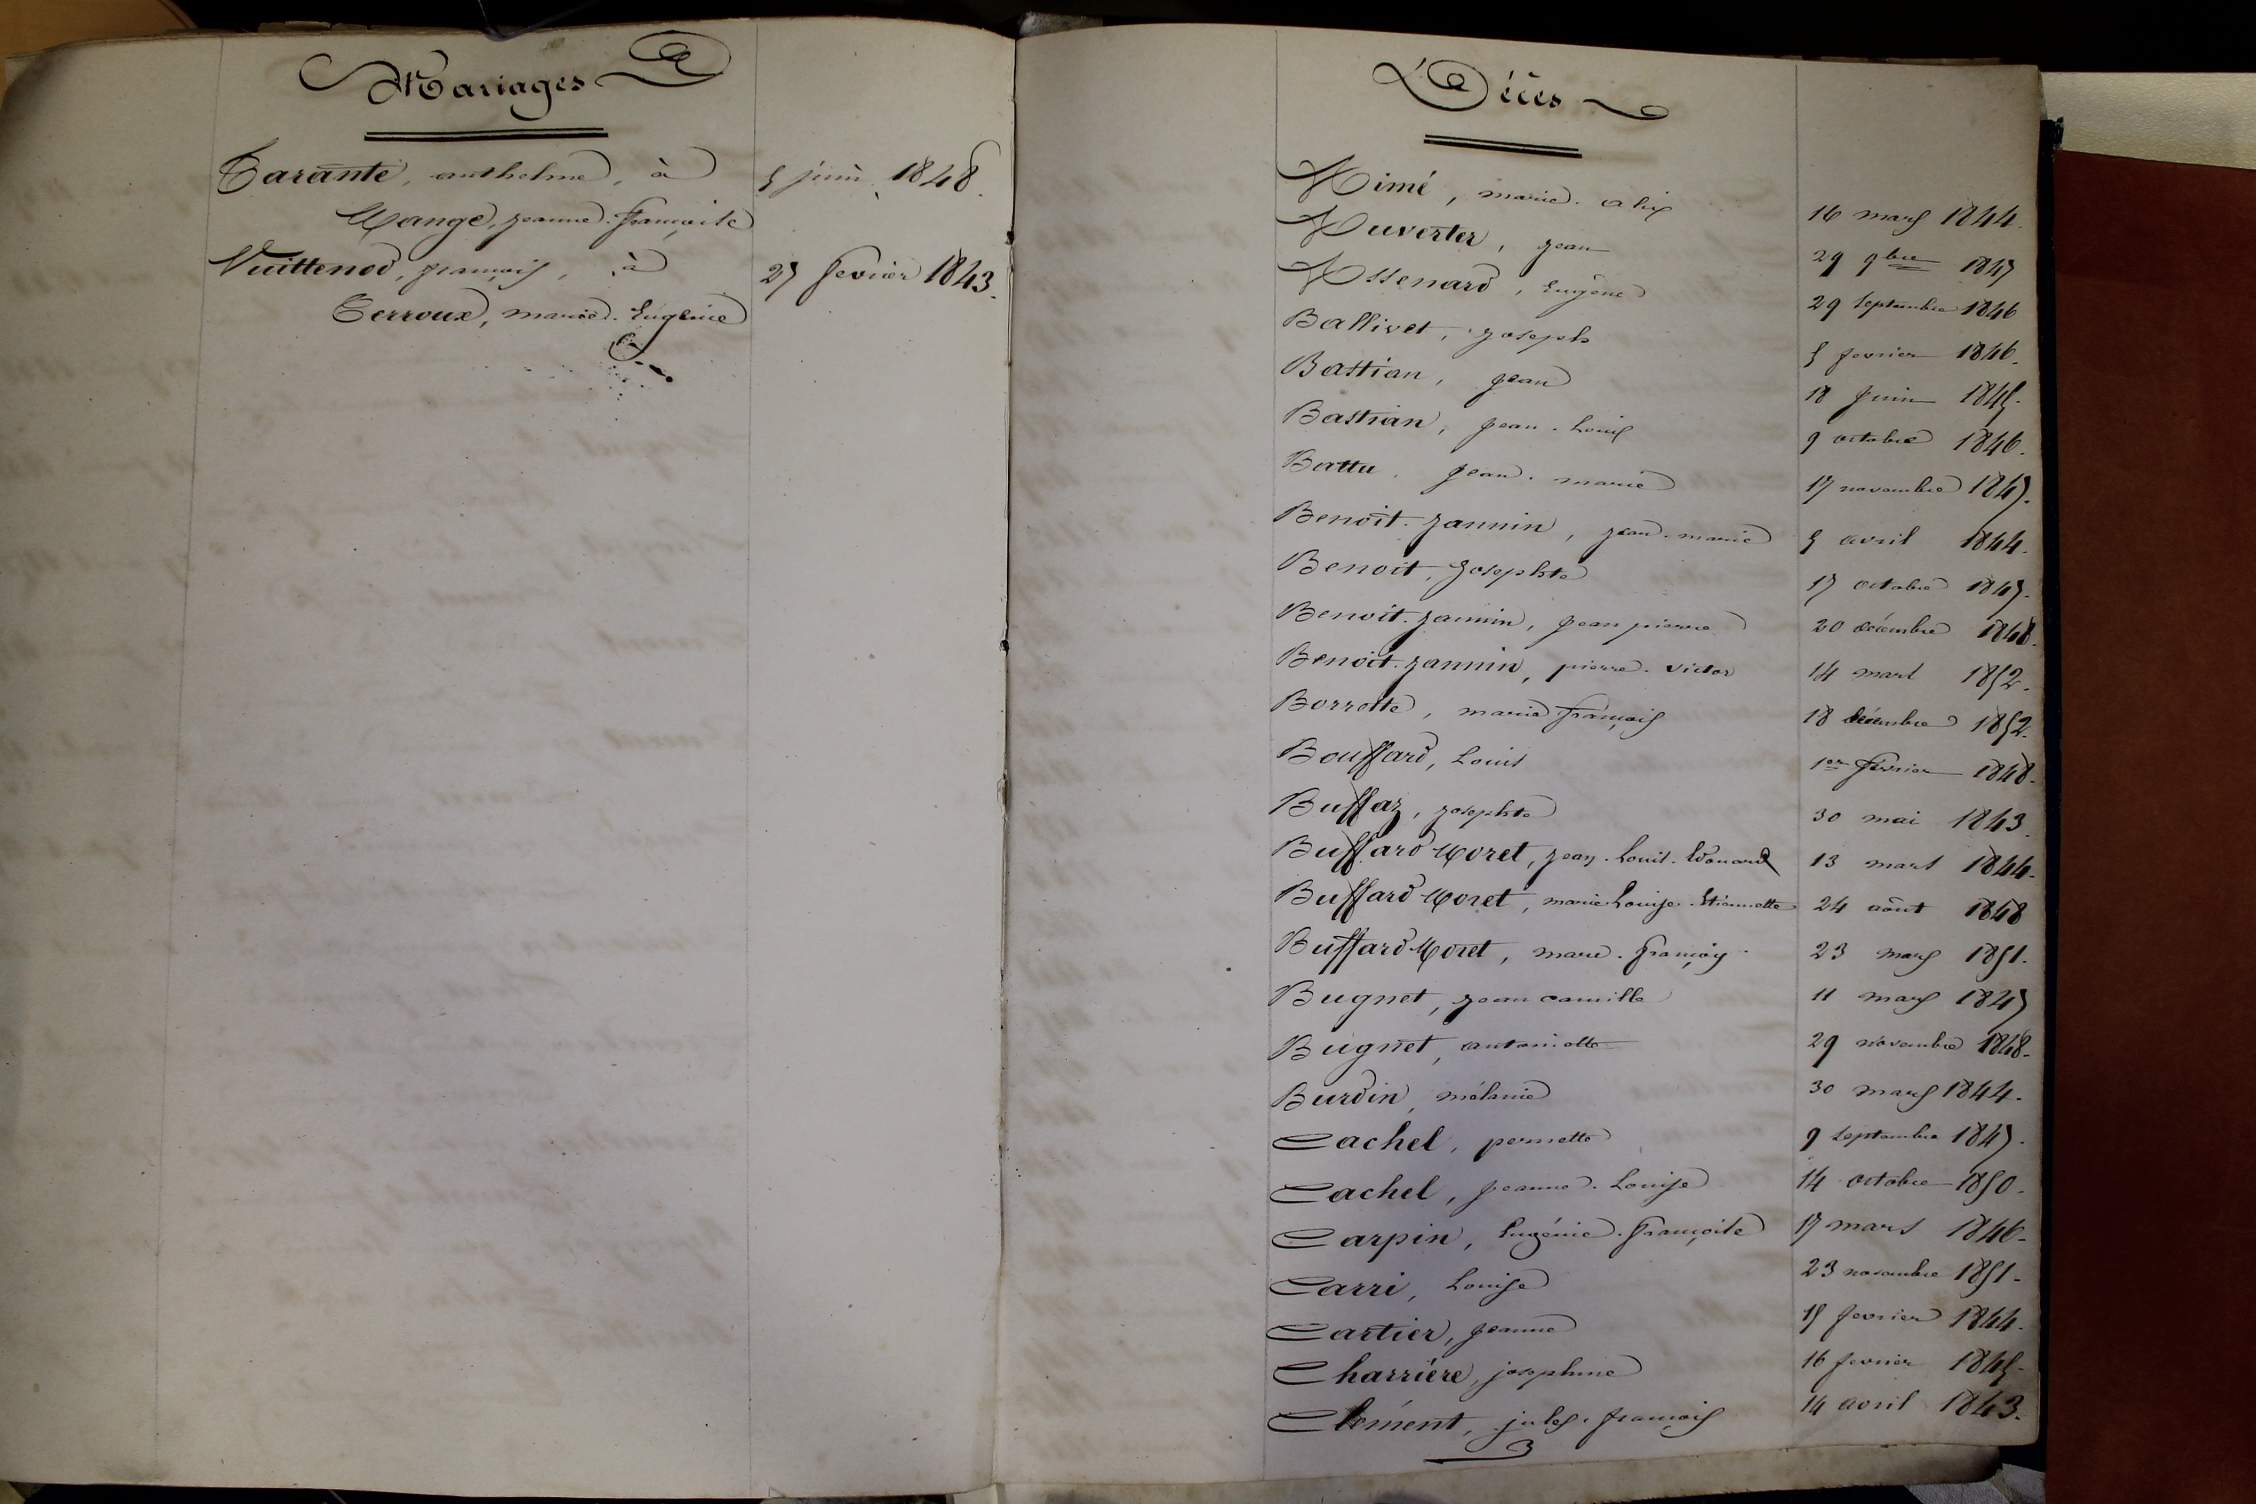 Mariages
Tarante, anthelme, à 5 juin 1848.
Mange, jeanne. françoise
Vuittenod, françois, à 27 fevrier 1843.
Terroux, marie. Eugénie
Décès
Aimé, marie. alix 16 mars 1844.
Auverter, jean 29 9bre 1847
Assenard, Eugène 29 septembre 1846
Ballivet, joseph 5 fevrier 1846.
Bastian, jean 18 juin 1845.
Bastian, jean. Louis 9 octobre 1846.
Battu. jean. marie 17 novembre 1847.
Benoit. Jannin, jean. marie 5 avril 1844.
Benoit, Josephte 17 octobre 1847.
Benoit. Jannin, jean pierre 20 décembre 1848.
Benoit. Jannin, pierre. victor 14 mars 1852.
Borrotte, marie françois 18 décembre 1852.
Bouffard, Louis 1er février 1848.
Buffaz, josephte 30 mai 1843.
Buffard Moret, jean. Louis. Edouard 13 mars 1844.
Buffard Moret, marie Louise. Etiennette 24 août 1848
Buffard Moret, marie. françois 23 mars 1851.
Bugnet, jean camille 11 mars 1847
Bugnet, antoinette 29 novembre 1848.
Burdin, mélanie 30 mars 1844.
Cachel, pernette 9 septembre 1847.
Cachel, jeanne. Louise 14 octobre 1850.
Carpin, Eugénie. françoise 17 mars 1846.
Carri, Louise 23 novembre 1851.
Cartier, jeanne 15 fevrier 1844.
Charrière, josephine 16 fevrier 1845.
Clément, jules. françois 14 avril 1843.